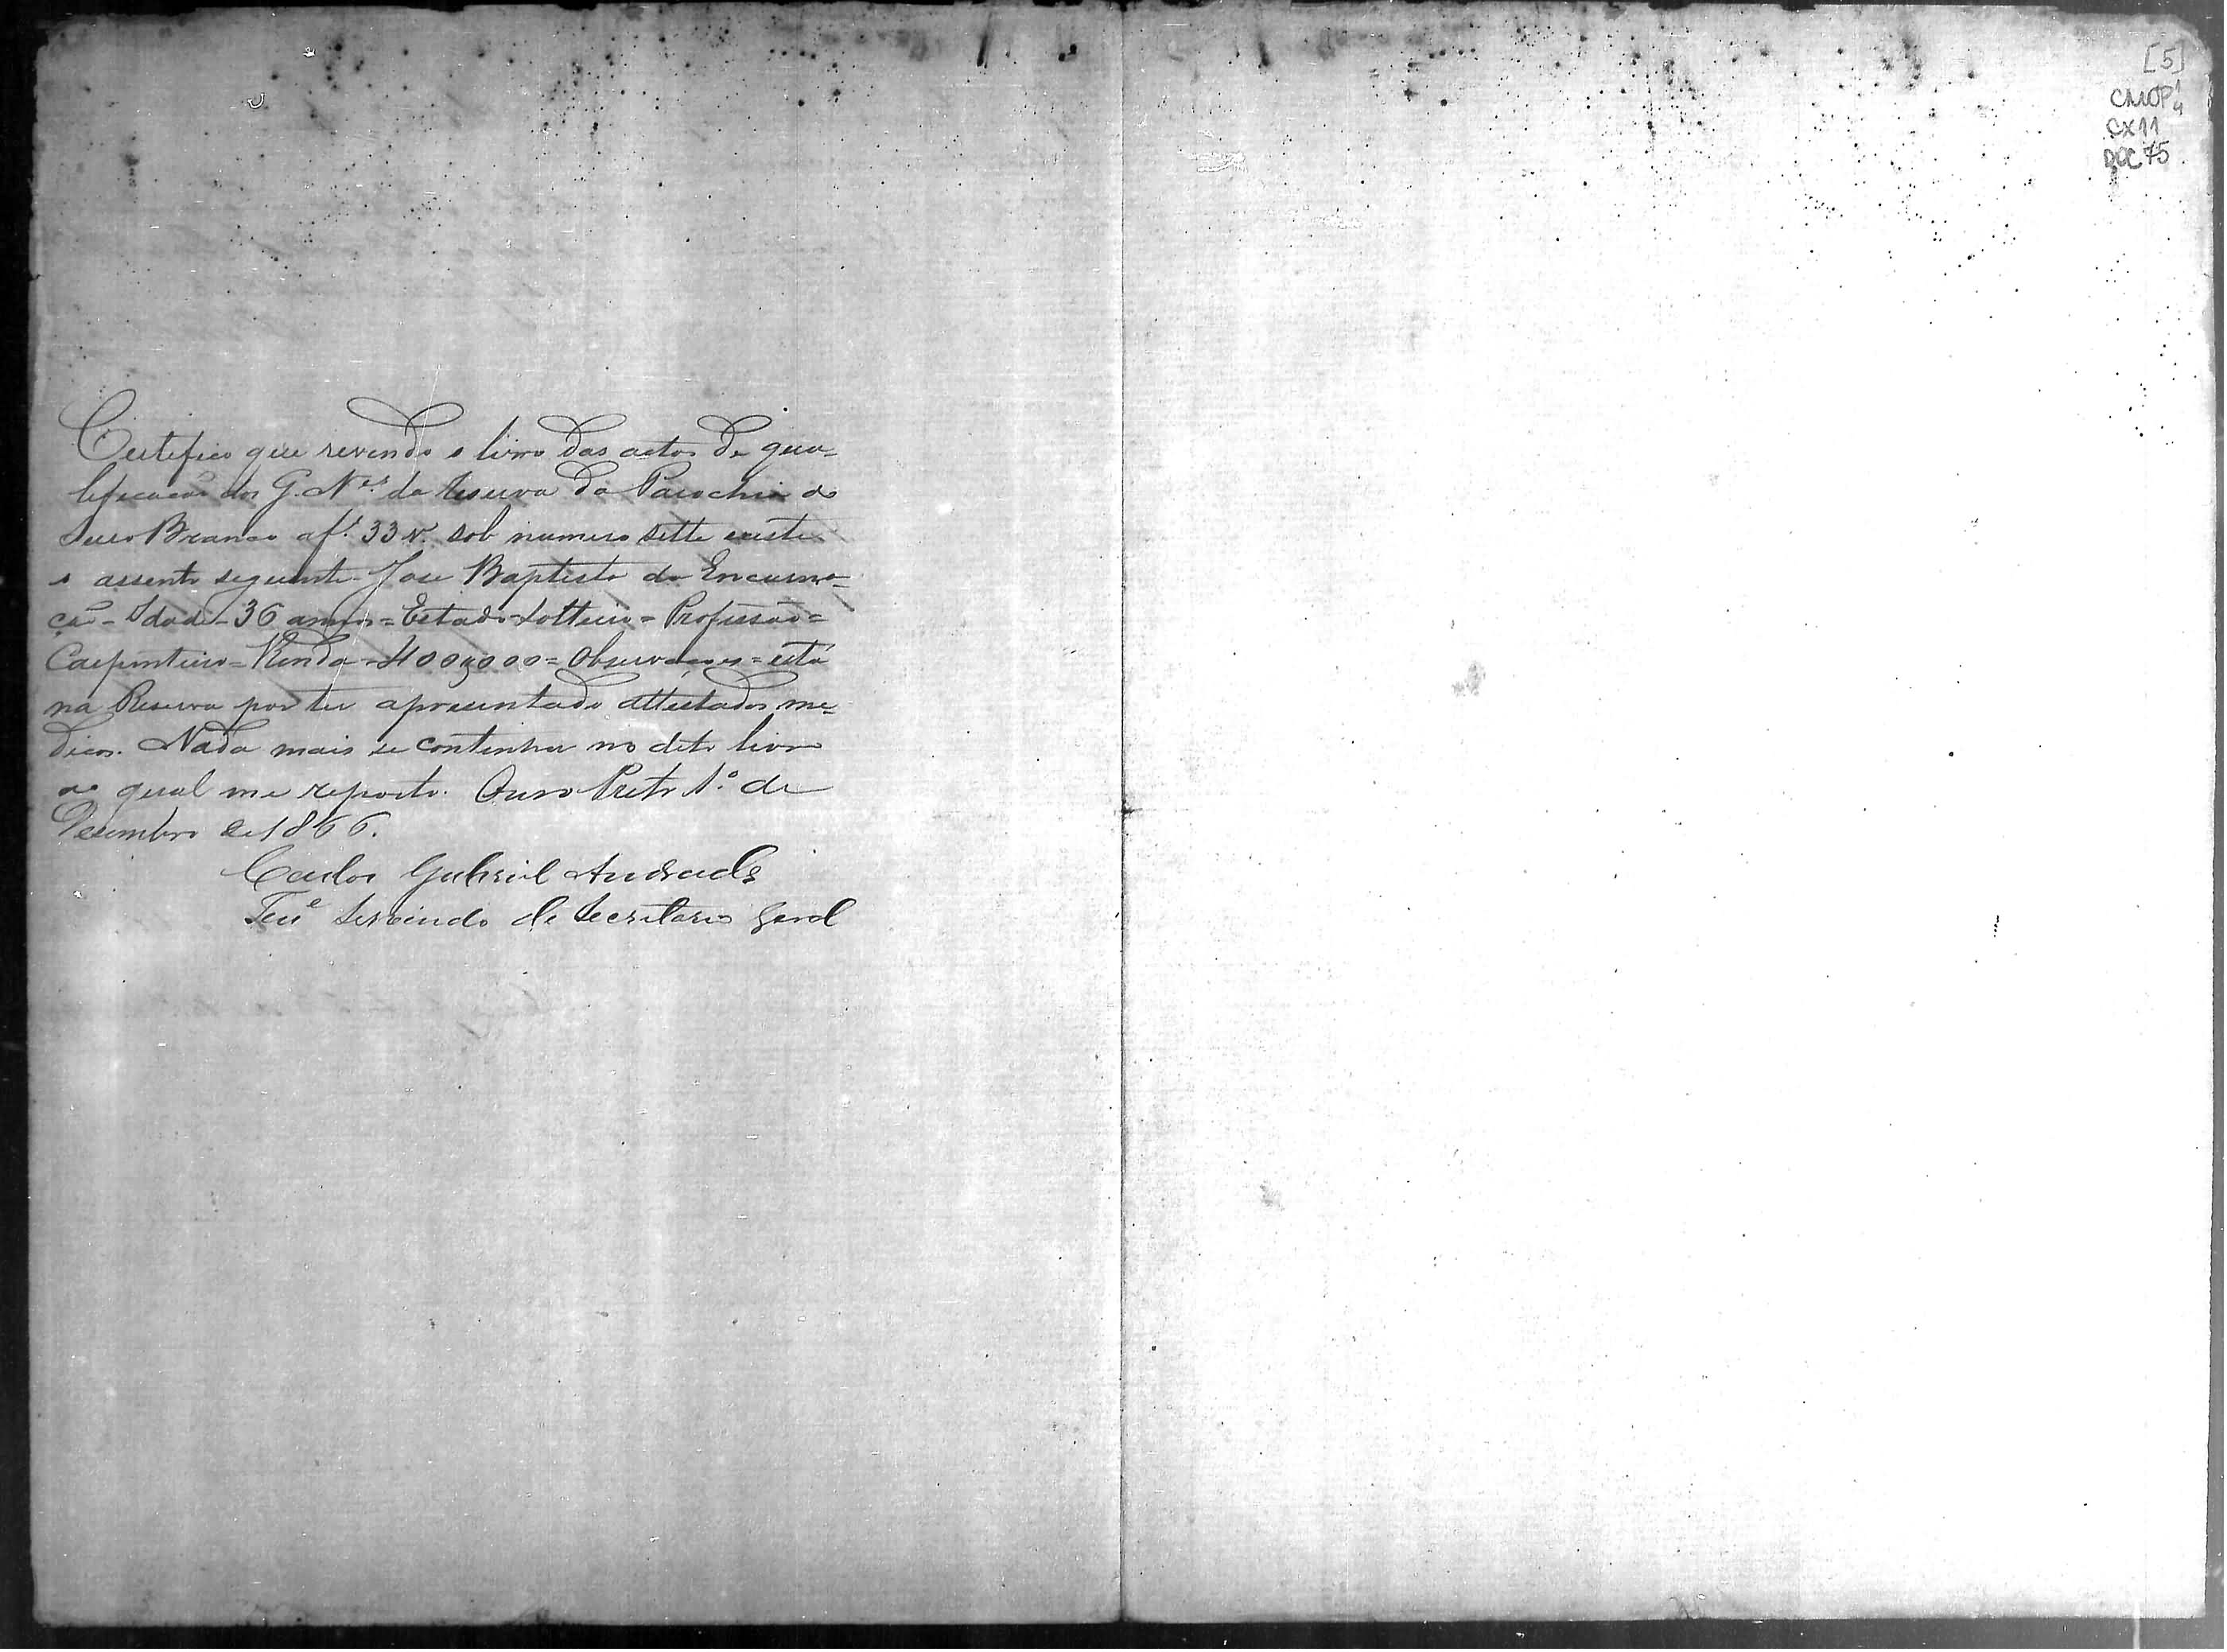 Certifico que revendo o livro das actas de qua-
lificação dos G. N.es da reserva da Parochia do
Ouro Branco a f.s 33 v. sob numero sette existe
o assento seguinte - Jose Baptista da Encarna-
çaõ - Idade - 36 annos = Estado = Solteiro = Profissão =
Carpinteiro = Renda = 400$000 = Observações = está
na Reserva por ter apresentado attestados me-
dicos. Nada mais se continha no dito livro
ao qual me reporto. Ouro Preto 1.º de
Dezembro de 1866.
Carlos Gabriel Andrade
Ten.e servindo de Secretario Geral
[5]
CMOP 1/4
CX11
DOC 75